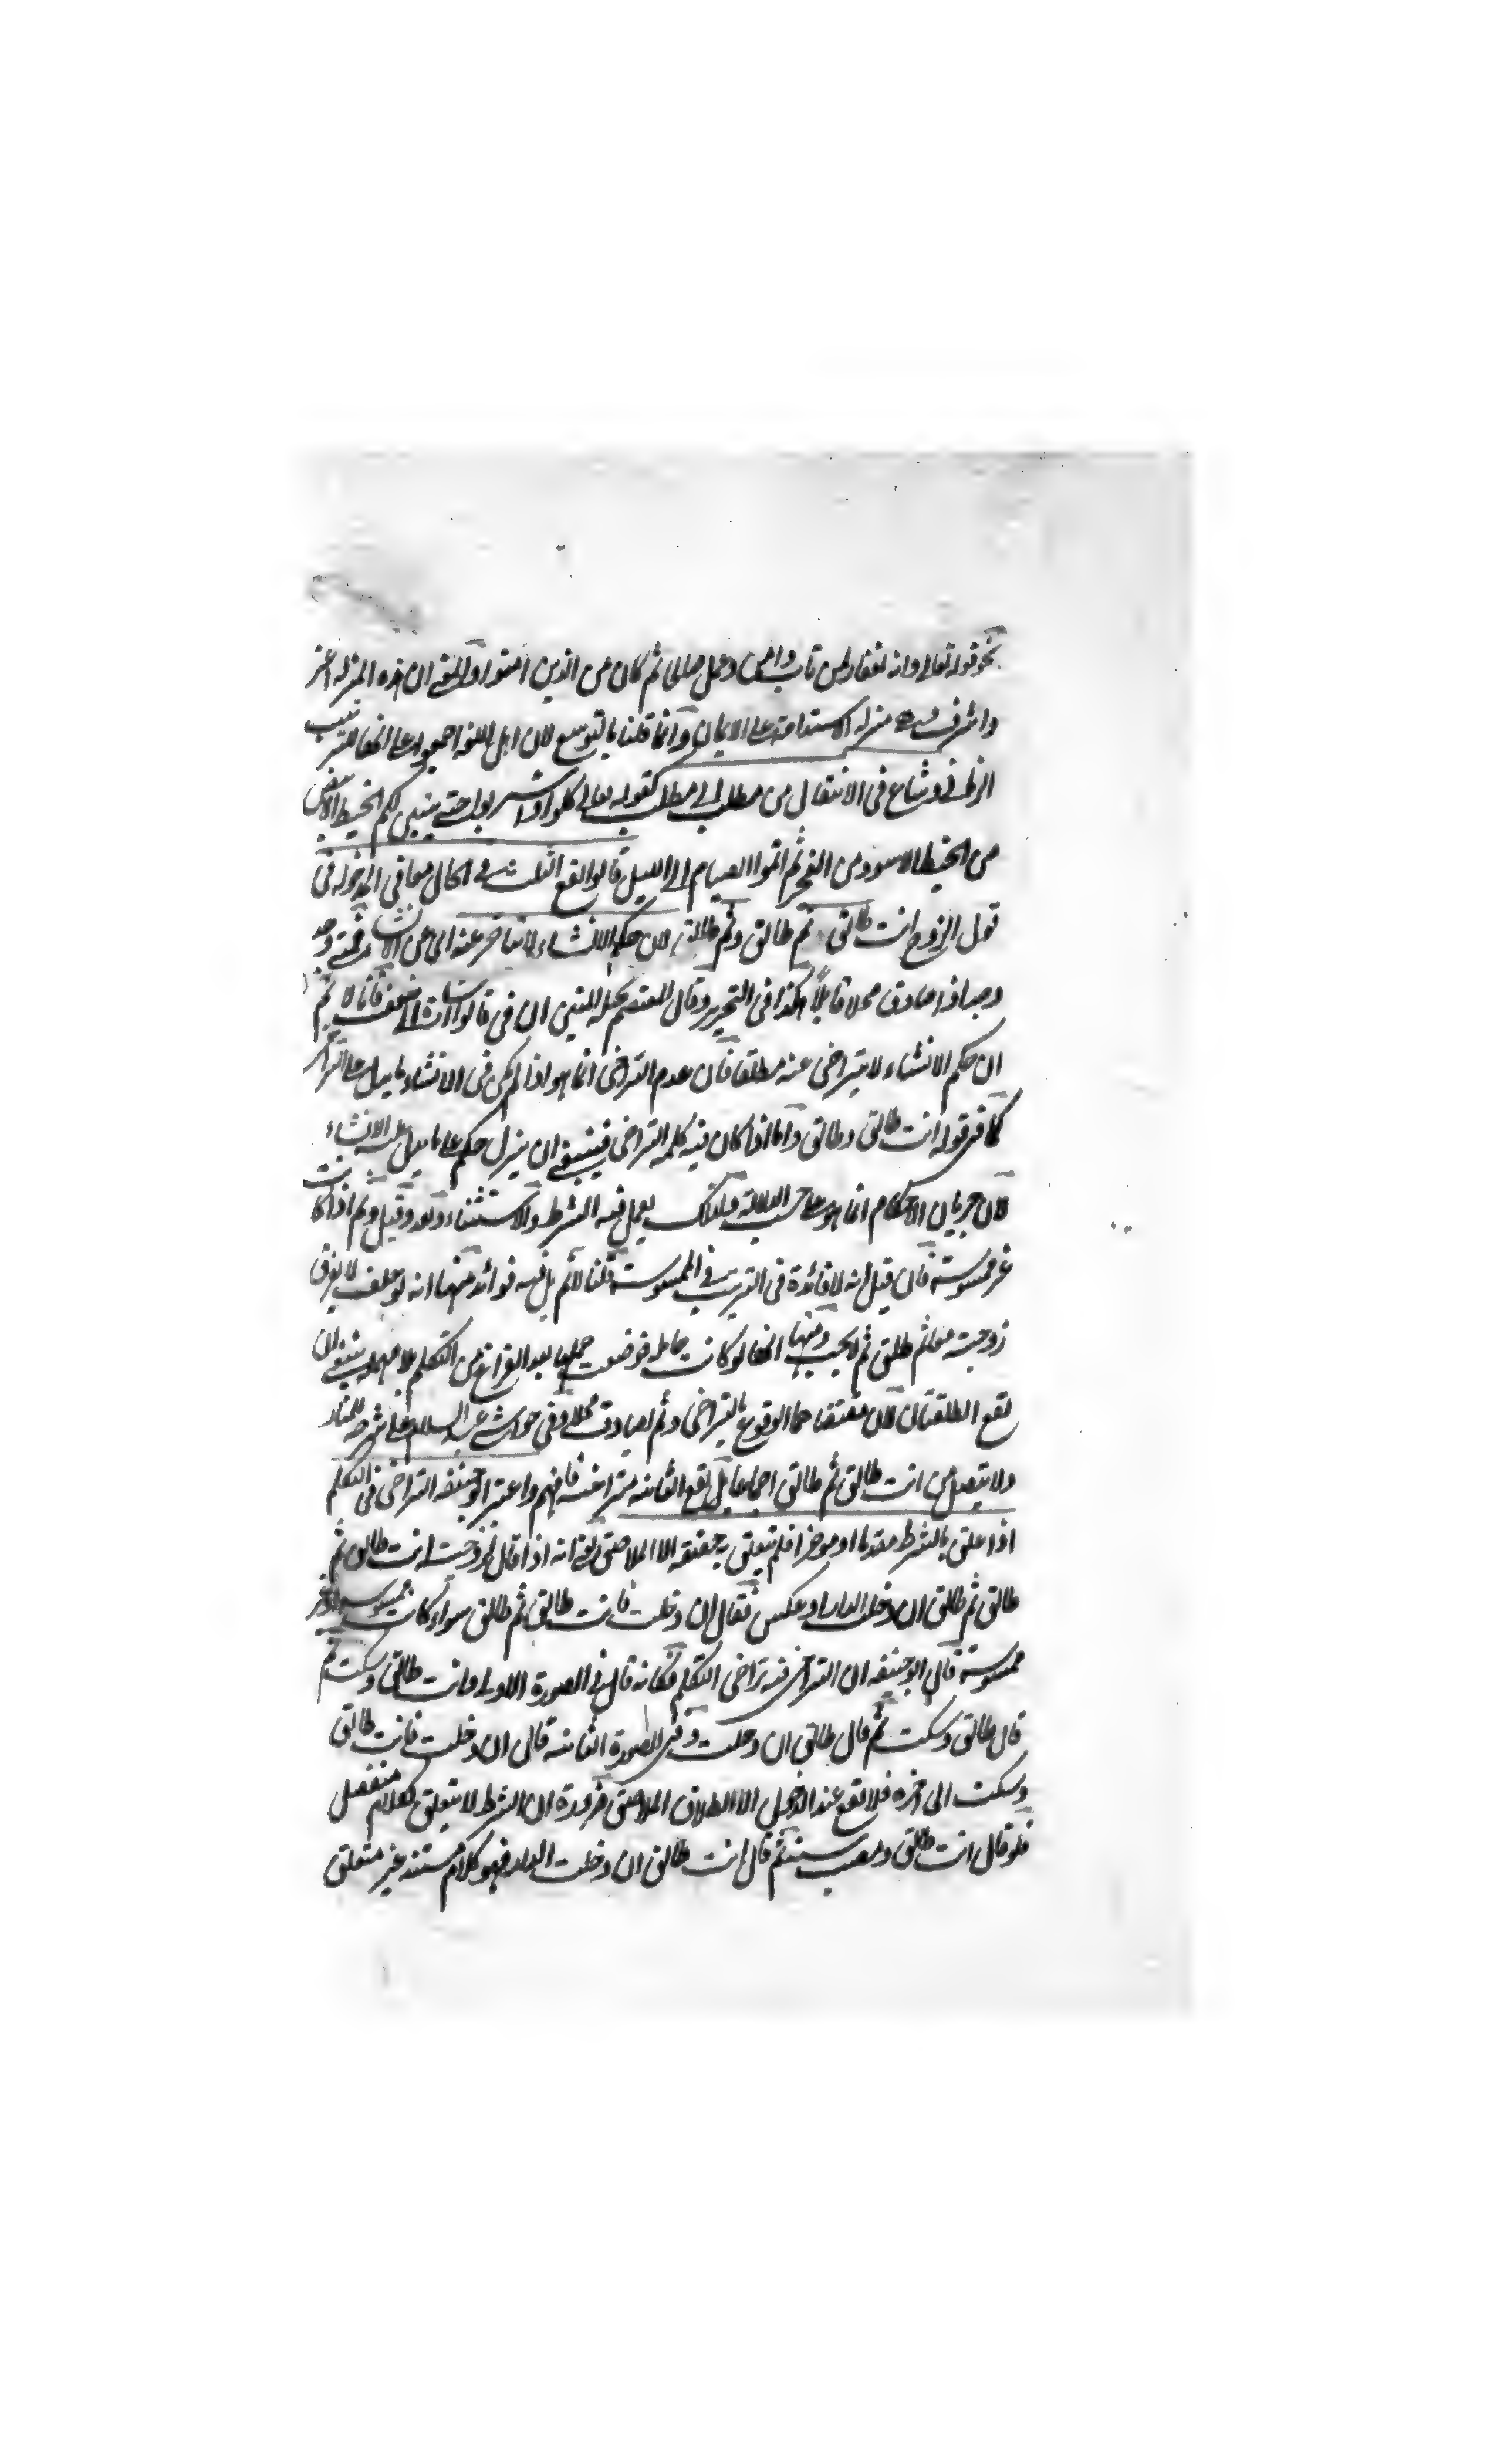 نحو قوله تعالى وانه لغفار لمن تاب وامن وعمل صالحا ثم كان من الذين امنوا والمعنى ان هذه المنزلة اعز
واشرف منزلة الاستدامة على الايمان وانما قلنا بالتوسع لان اهل اللغة اجمعوا على انها للترتيب
الزماني وشاع في الانتقال من مطلب الى مطلب كقوله تعالى كلوا واشربوا حتى يتبين لكم الخيط الابيض
من الخيط الاسود من الفجر ثم اتموا الصيام الى الليل قالوا يقع الثلث في الحال معا في المدخولة في
قول الزوج انت طالق ثم طالق وثم طالق لان حكم الانشاء لا يتاخر عنه
محلا قابلا هكذا في التحرير وقال المعتصم بحبله المتين ان في قالوا اشارة الى ضعف فانا لا نم
ان حكم الانشاء لا يتراخى عنه مطلقا فان عدم التراخى انما هو اذا لم يكن في الانشاء ما يدل على التراخي
كما في قوله انت طالق وطالق واما اذا كان فيه كلمة التراخى فينبغي ان ينزل حكم على ما يدل عليه الانشاء
لان جريان الاحكام انما هو على حسب الدلالة ولذلك يعمل فيه الشرط والاستثناء وبعد وقبل وثم اذا كانت
غير ممسوسة فان قيل انه لا فائدة في الترتيب في الممسوسة قلنا لا نم بل فيه فوائد منها انه لو حلف لا يفرق
زوجته معا ثم طلق ثم لا يجب ومنها انها لو كانت حاملة فوضعت حملها بعد الفراغ من التكلم بلا مهلة ينبغي ان
تقع الطلقتان لان مقتضاهما الوقوع بالتراخى وثم لصادق محلا وفي حواشي عبد السلام على شرحه للمنار
ولا يتصل من انت طالق ثم طالق اجماعا بل يقع الثانية متراخية فافهم واعتبر ابو حنيفة التراخى في التكلم
اذا علق بالشرط مقدما او موخرا فلم يتعلق حقيقة الا الملاصق يعني انه اذا قال لزوجته انت طالق ثم
طالق ثم طالق ان دخلت الدار او عكس فقال ان دخلت فانت طالق ثم طالق سواء كانت ممسوسة او غير
ممسوسة قال ابو حنيفة ان التراخى فيه تراخى التكلم فكانه قال في الصورة الاولى انت طالق وسكت ثم
قال طالق وسكت ثم قال طالق ان دخلت وفي الصورة الثانية قال ان دخلت فانت طالق
وسكت الى اخره فلا تقع عند الدخول الا الطلاق الملاصق ضرورة ان الشرط لا يتعلق بكلام منفصل
فلو قال انت طالق ثم قال انت طالق ان دخلت الدار فهو كلام مستند غير متعلق